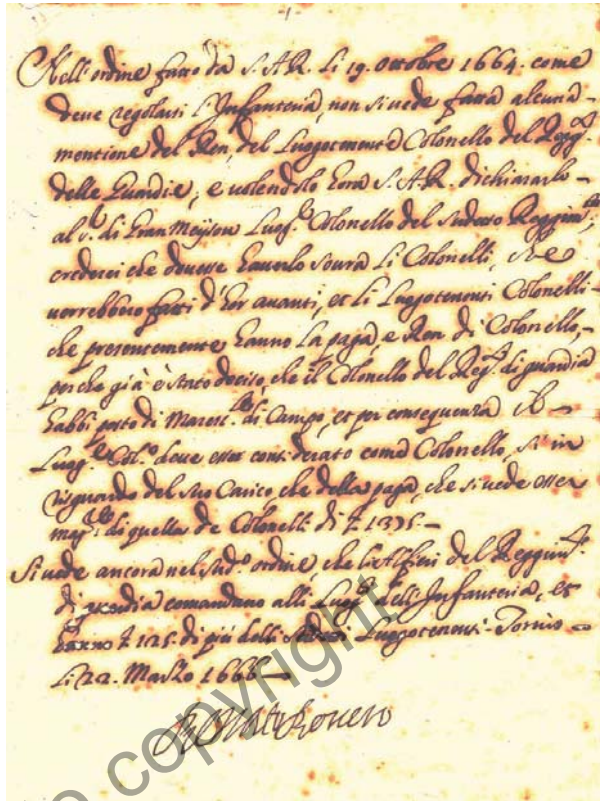 1
Nell'ordine fatto da S. A. R. li 19. ottobre 1664. come
deve regolarsi l'Infanteria, non si vede fatta alcuna
mentione del Ren, del Luogotenente Colonello del Regg.
delle Guardie, e volendolo hora S. A. R. dichiararlo
al s.r di Gran Meyson Luog.e Colonello del sudetto Reggim.to,
crederei che dovesse haverlo sovra li Colonelli, che
verrebbero fatti d'hor avanti, et li Luogotenenti Colonelli
che presentemente hanno la paga, e Ren di Colonello,
perche già è stato deciso, che il Colonello del Reg.to di guardia
habbi posto di Maresc.llo di Campo, et per consequenza il
Luog.e Col.o deve esser considerato come Colonello, si in
risguardo del suo Carico, che della paga, che si vede esser
magg.re di quella de Colonelli di 1375.
Si vede ancora nel sud.o ordine, che li Alfieri del Reggim.to
di guardia comandano alli Luog.ti dell'Infanteria, et
hanno 125. di più delli Luogotenenti. Torino
li 22. Marzo 1666
copyright